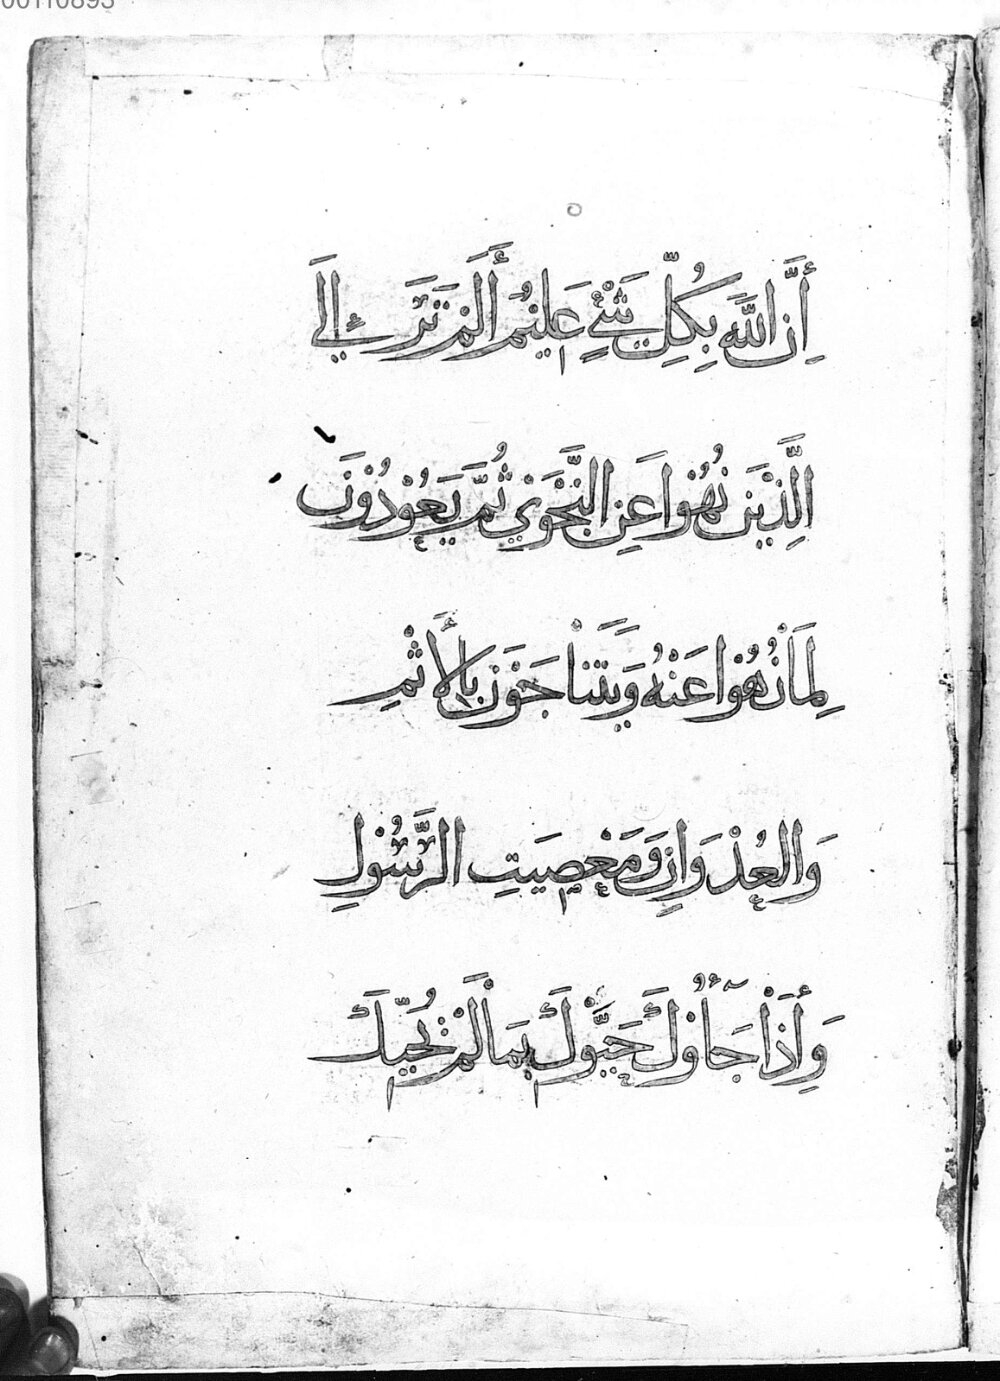 00110893
إِنَّ اللَّهَ بِكُلِّ شَيْءٍ عَلِيمٌ أَلَمْ تَرَ إِلَى
الَّذِينَ نُهُوا عَنِ النَّجْوَىٰ ثُمَّ يَعُودُونَ
لِمَا نُهُوا عَنْهُ وَيَتَنَاجَوْنَ بِالْإِثْمِ
وَالْعُدْوَانِ وَمَعْصِيَتِ الرَّسُولِ
وَإِذَا جَاءُوكَ حَيَّوْكَ بِمَا لَمْ يُحَيِّكَ